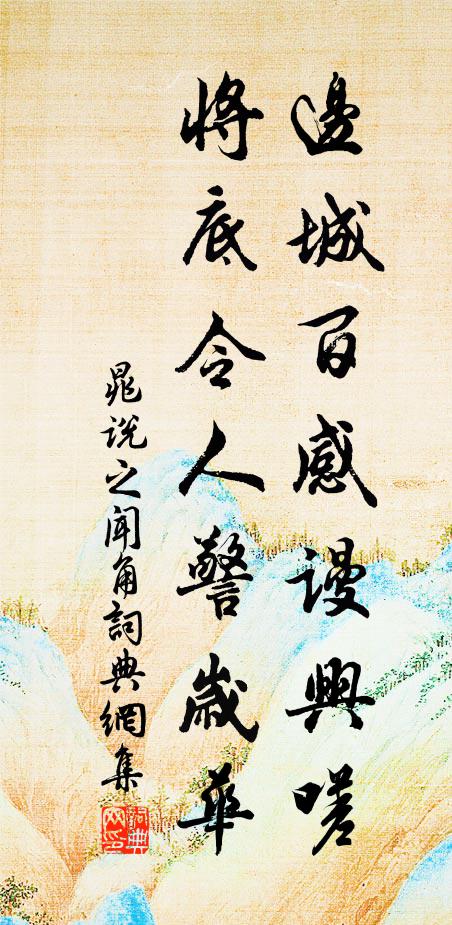 邊城百感謾興嗟
將底令人警歲華
晁說之聞角詞典網集
詞典网印